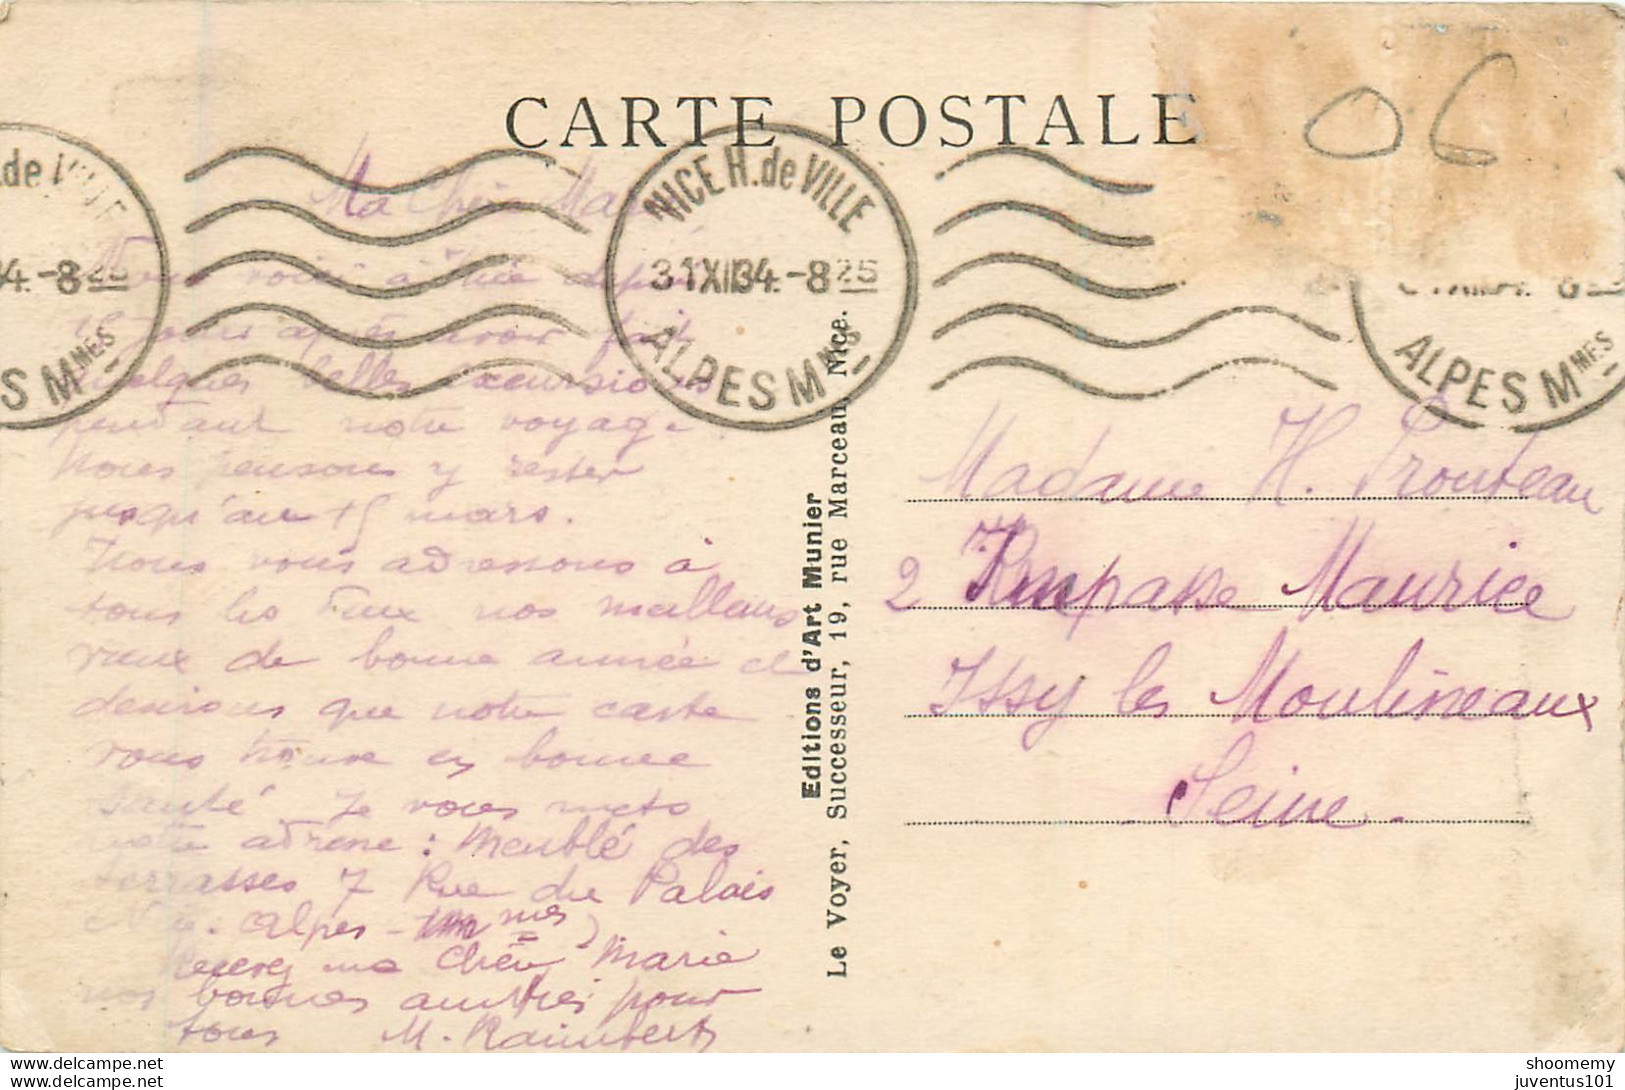 CARTE POSTALE
06
NICE H. de VILLE
31 XII 34 - 8 25
ALPES Mnes
.de VILLE
34 - 8 25
S Mnes
ALPES Mnes
Ma Chère Marie
Nous voici à Nice depuis
15 jours après avoir fait
quelques belles excursions
pendant notre voyage
Nous pensons y rester
jusqu'au 15 mars.
Nous vous adressons à
tous les deux nos meilleurs
vœux de bonne année et
desirons que notre carte
vous trouve en bonne
santé Je vous mets
notre adresse : Meublé des
terrasses 7 Rue du Palais
Nice. Alpes - mes
Recevez ma Chère Marie
nos bonnes amitiés pour
tous M. Raimbert
Editions d'Art Munier
Le Voyer, Successeur, 19, rue Marceau, Nice.
Madame H. Prouteau
2 Impasse Maurice
Issy les Moulineaux
Seine.
shoomemy
juventus101